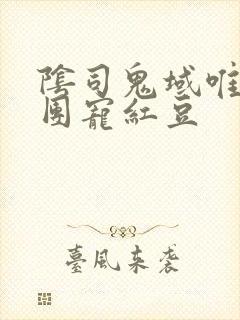 陰司鬼域唯
團寵紅豆
臺風來袭